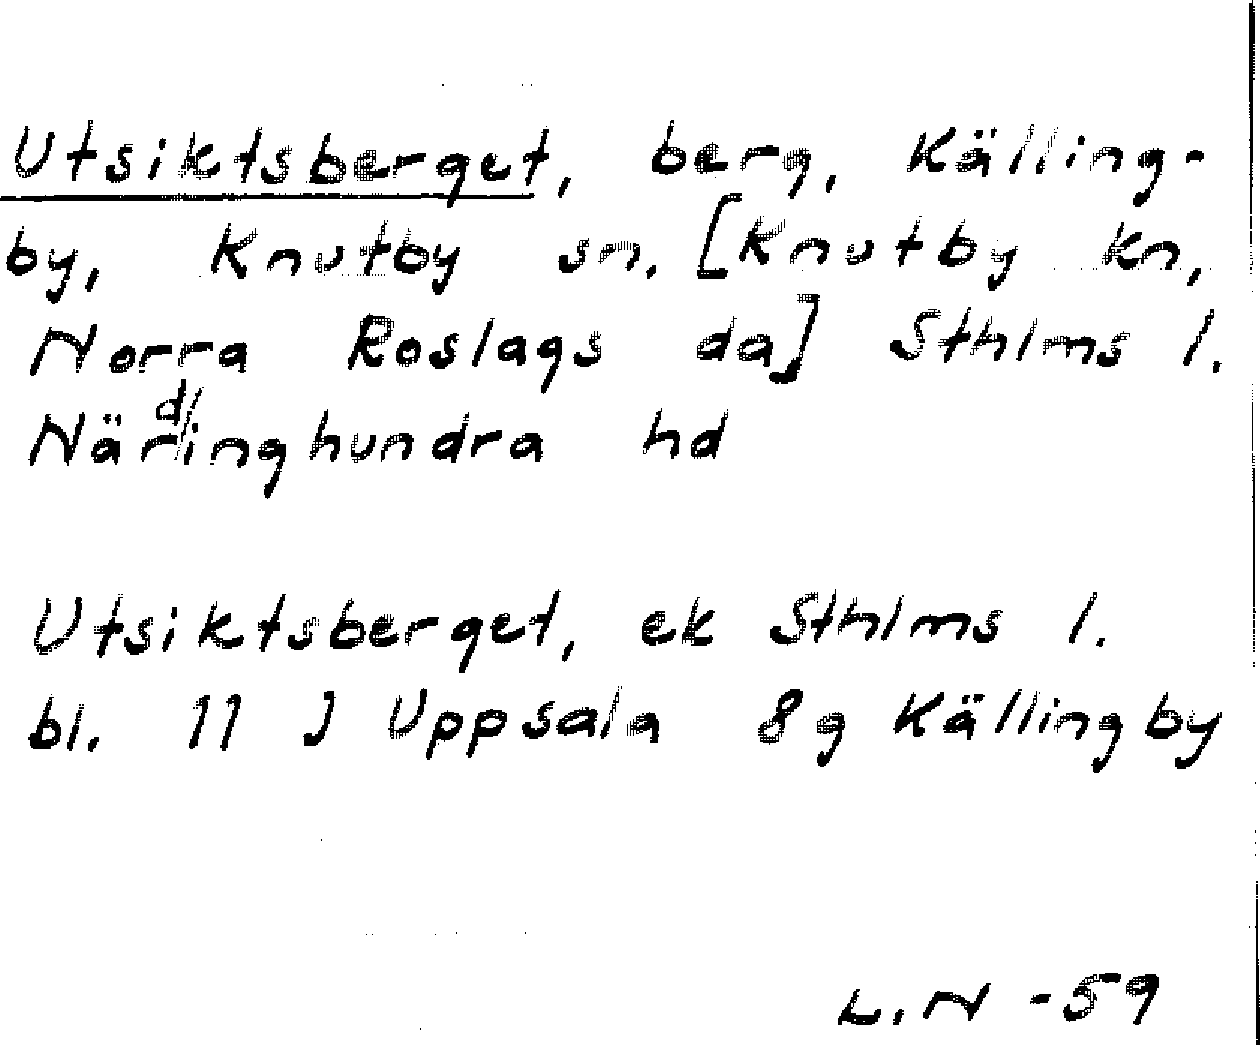 Utsiktsberget, berg, Källing-
by, Knutby sn. [Knutby kn,
Norra Roslags da] Sthlms l.
Närdinghundra hd
Utsiktsberget, ek Sthlms l.
bl. 11 J Uppsala 8g Källingby
L.N -59